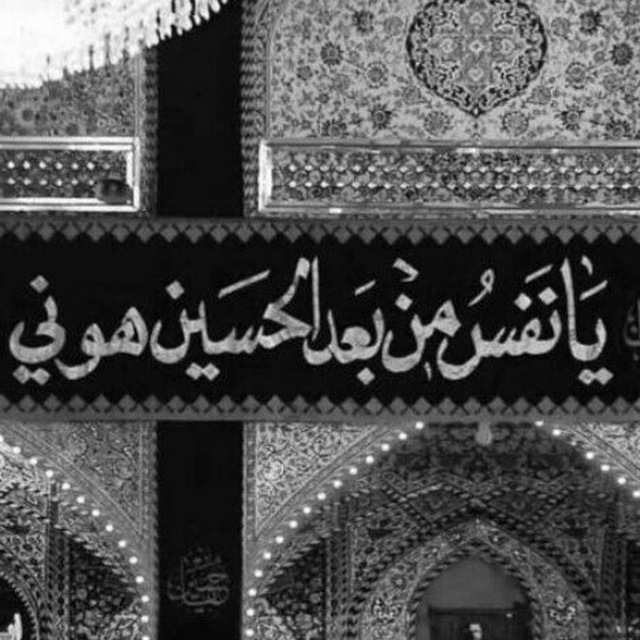 يَا نَفسُ مِنْ بَعَد الحُسَين هوني